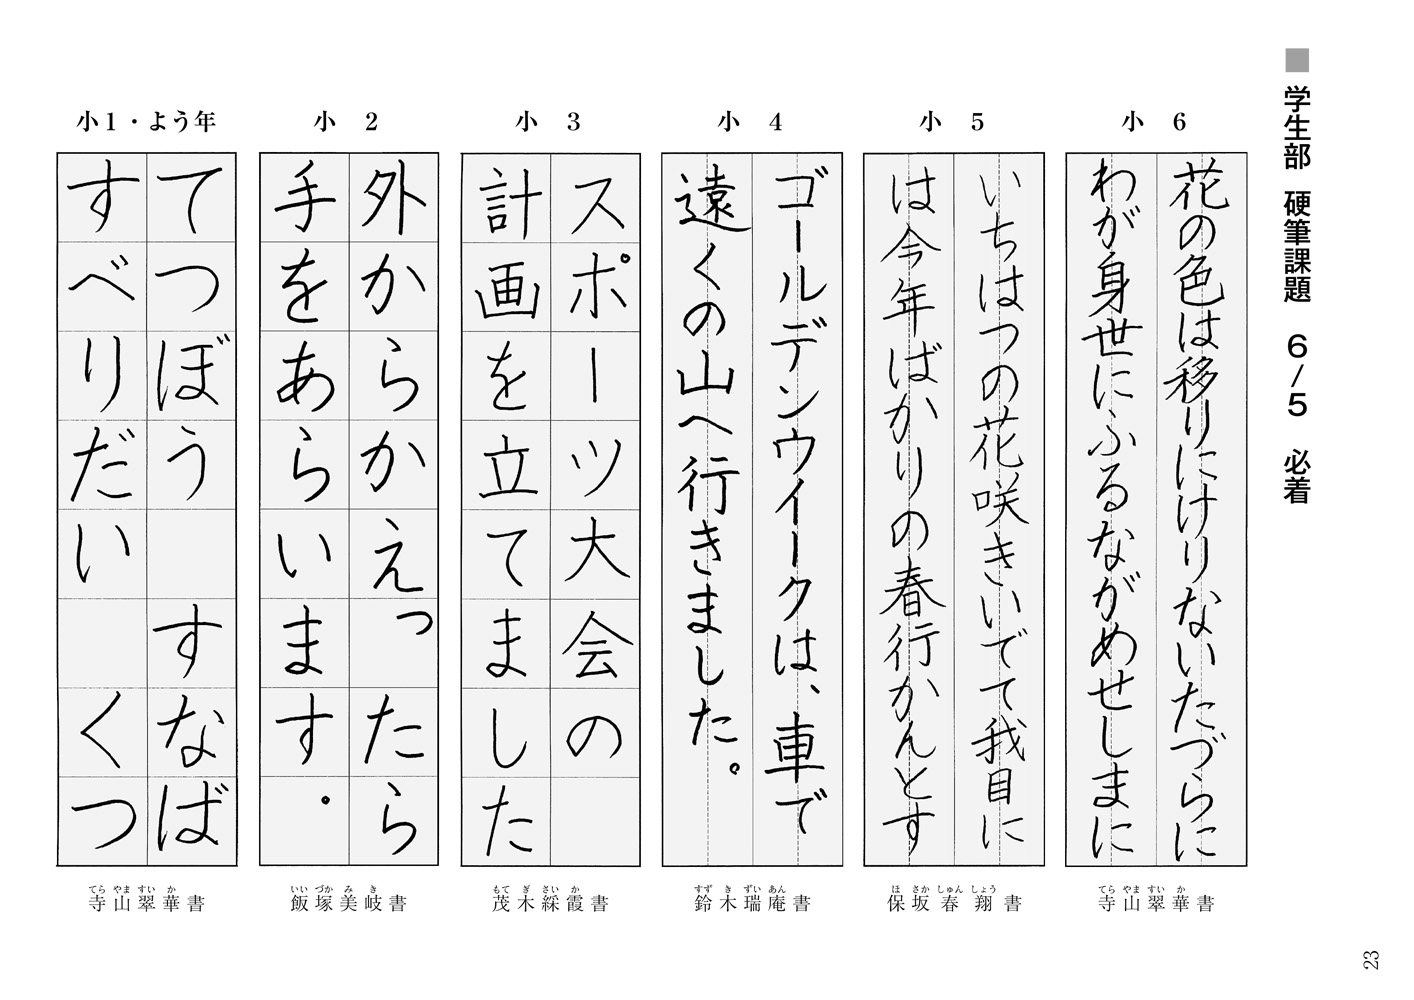 ■ 学生部 硬筆課題 6/5 必着
小 6
花の色は移りにけりないたづらに
わが身世にふるながめせしまに
てら やま すい か
寺山翠華書
小 5
いちはつの花咲きいでて我目に
は今年ばかりの春行かんとす
ほ さか しゅん しょう
保坂春翔書
小 4
ゴールデンウイークは、車で
遠くの山へ行きました。
すず き ずい あん
鈴木瑞庵書
小 3
スポーツ大会の
計画を立てました
もて ぎ さい か
茂木綵霞書
小 2
外からかえったら
手をあらいます。
いい づか み き
飯塚美岐書
小1・よう年
てつぼう すなば
すべりだい くつ
てら やま すい か
寺山翠華書
23